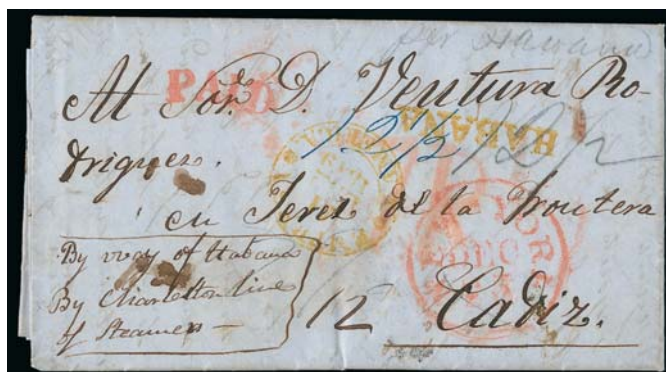 per Havana
PAID
Al Sor. D. Ventura Ro-
driguez.
HABANA
12½ 12½
en Jerez de la Frontera
By way of Habana
By Charleston line
of Steamers —
12
Cadiz.
YORK